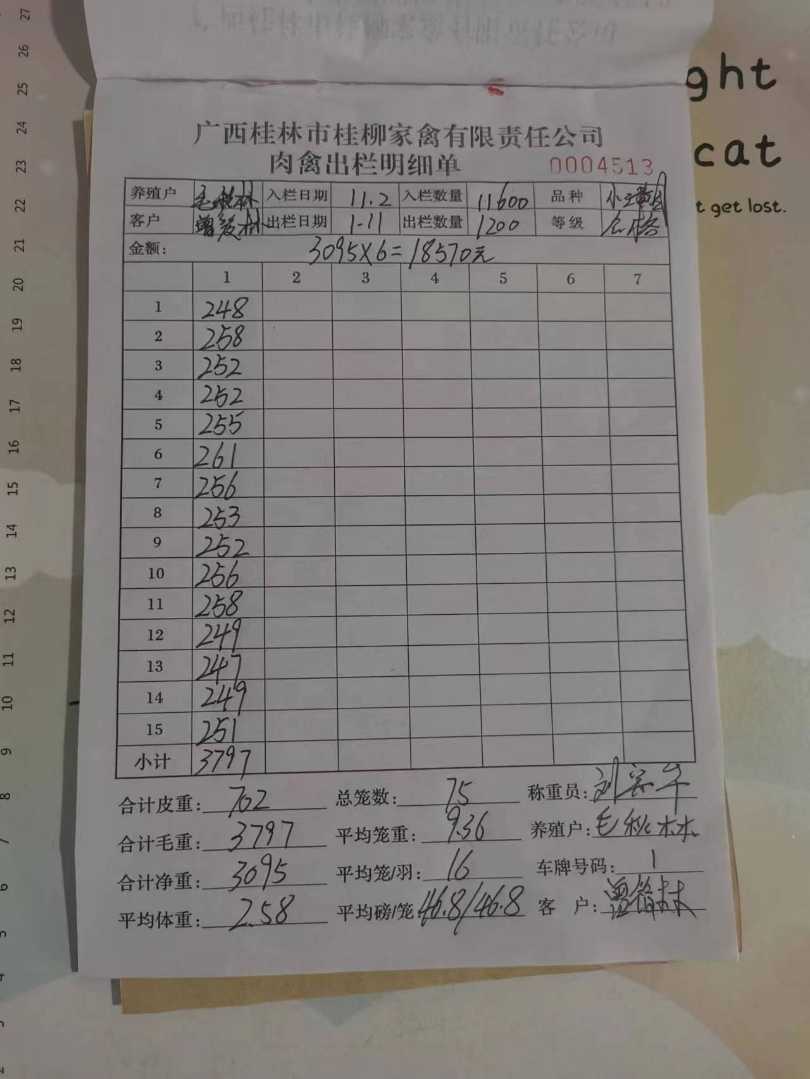 ght
cat
t get lost.
广西桂林市桂柳家禽有限责任公司
肉禽出栏明细单 0004513
养殖户 毛秋林 入栏日期 11.2 入栏数量 11600 品种
客户 出栏日期 1-11 出栏数量 1200 等级 合格
金额: 3095×6=18570元
1 2 3 4 5 6 7
1 248
2 258
3 252
4 252
5 255
6 261
7 256
8 253
9 252
10 256
11 258
12 249
13 247
14 249
15 251
小计 3797
合计皮重: 702 总笼数: 75 称重员:
合计毛重: 3797 平均笼重: 9.36 养殖户: 毛秋林
合计净重: 3095 平均笼/羽: 16 车牌号码: 1
平均体重: 2.58 平均磅/笼 46.8/46.8 客 户:
27
26
25
24
23
22
21
20
19
18
17
16
15
14
13
12
11
10
9
8
7
6
5